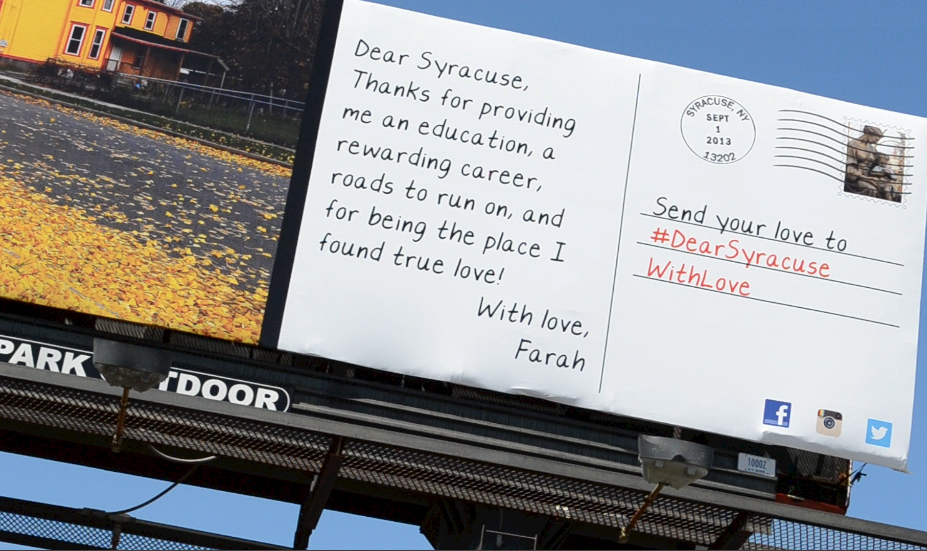 Dear Syracuse,
Thanks for providing
me an education, a
rewarding career,
roads to run on, and
for being the place I
found true love!
With love,
Farah
SYRACUSE, NY
SEPT
1
2013
13202
Send your love to
#DearSyracuse
WithLove
PARK
TDOOR